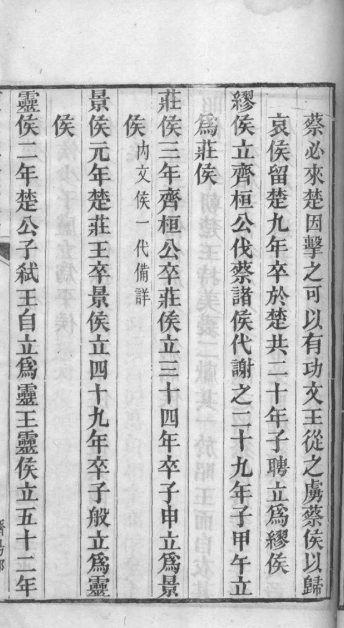 蔡必來楚因擊之可以有功文王從之虜蔡侯以歸
哀侯留楚九年卒於楚共二十年子聘立爲繆侯
繆侯立齊桓公伐蔡諸侯代謝之二十九年子甲午立
爲莊侯
莊侯三年齊桓公卒莊侯立三十四年卒子申立爲景
侯 內文侯一代備詳
景侯元年楚莊王卒景侯立四十九年卒子般立爲靈
侯
靈侯二年楚公子弒王自立爲靈王靈侯立五十二年